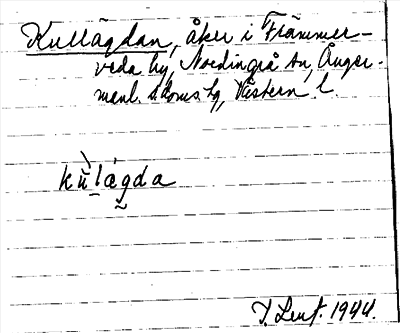 Kullägdan, åker i Främmer-
veda by, Nordingrå sn, Ånger-
manl. s. doms. tg, Västern. l.
kùlägda
1944.